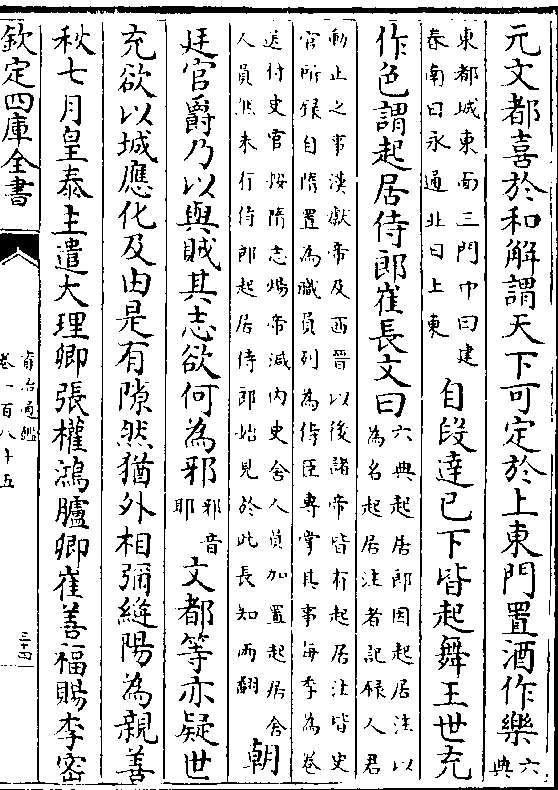 元文都喜於和解謂天下可定於上東門置酒作樂
六
典
東都城東面三門中曰建
春南曰永通北曰上東
自段達已下皆起舞王世充
作色謂起居侍郎崔長文曰
六典起居郎因起居注以
為名起居注者記録人君
動止之事漢獻帝及西晉以後諸帝皆有起居注皆史
官所録自隋置為職員列為侍臣專掌其事每季為卷
送付史官按隋志煬帝減内史舍人員加置起居舍
人員然未行侍郎起居侍郎始見於此長知兩翻
朝
廷官爵乃以與賊其志欲何為邪
邪音
耶
文都等亦疑世
充欲以城應化及由是有隙然猶外相彌縫陽為親善
秋七月皇泰主遣大理卿張權鴻臚卿崔善福賜李密
欽定四庫全書
資治通鑑
卷一百八十五
三十四